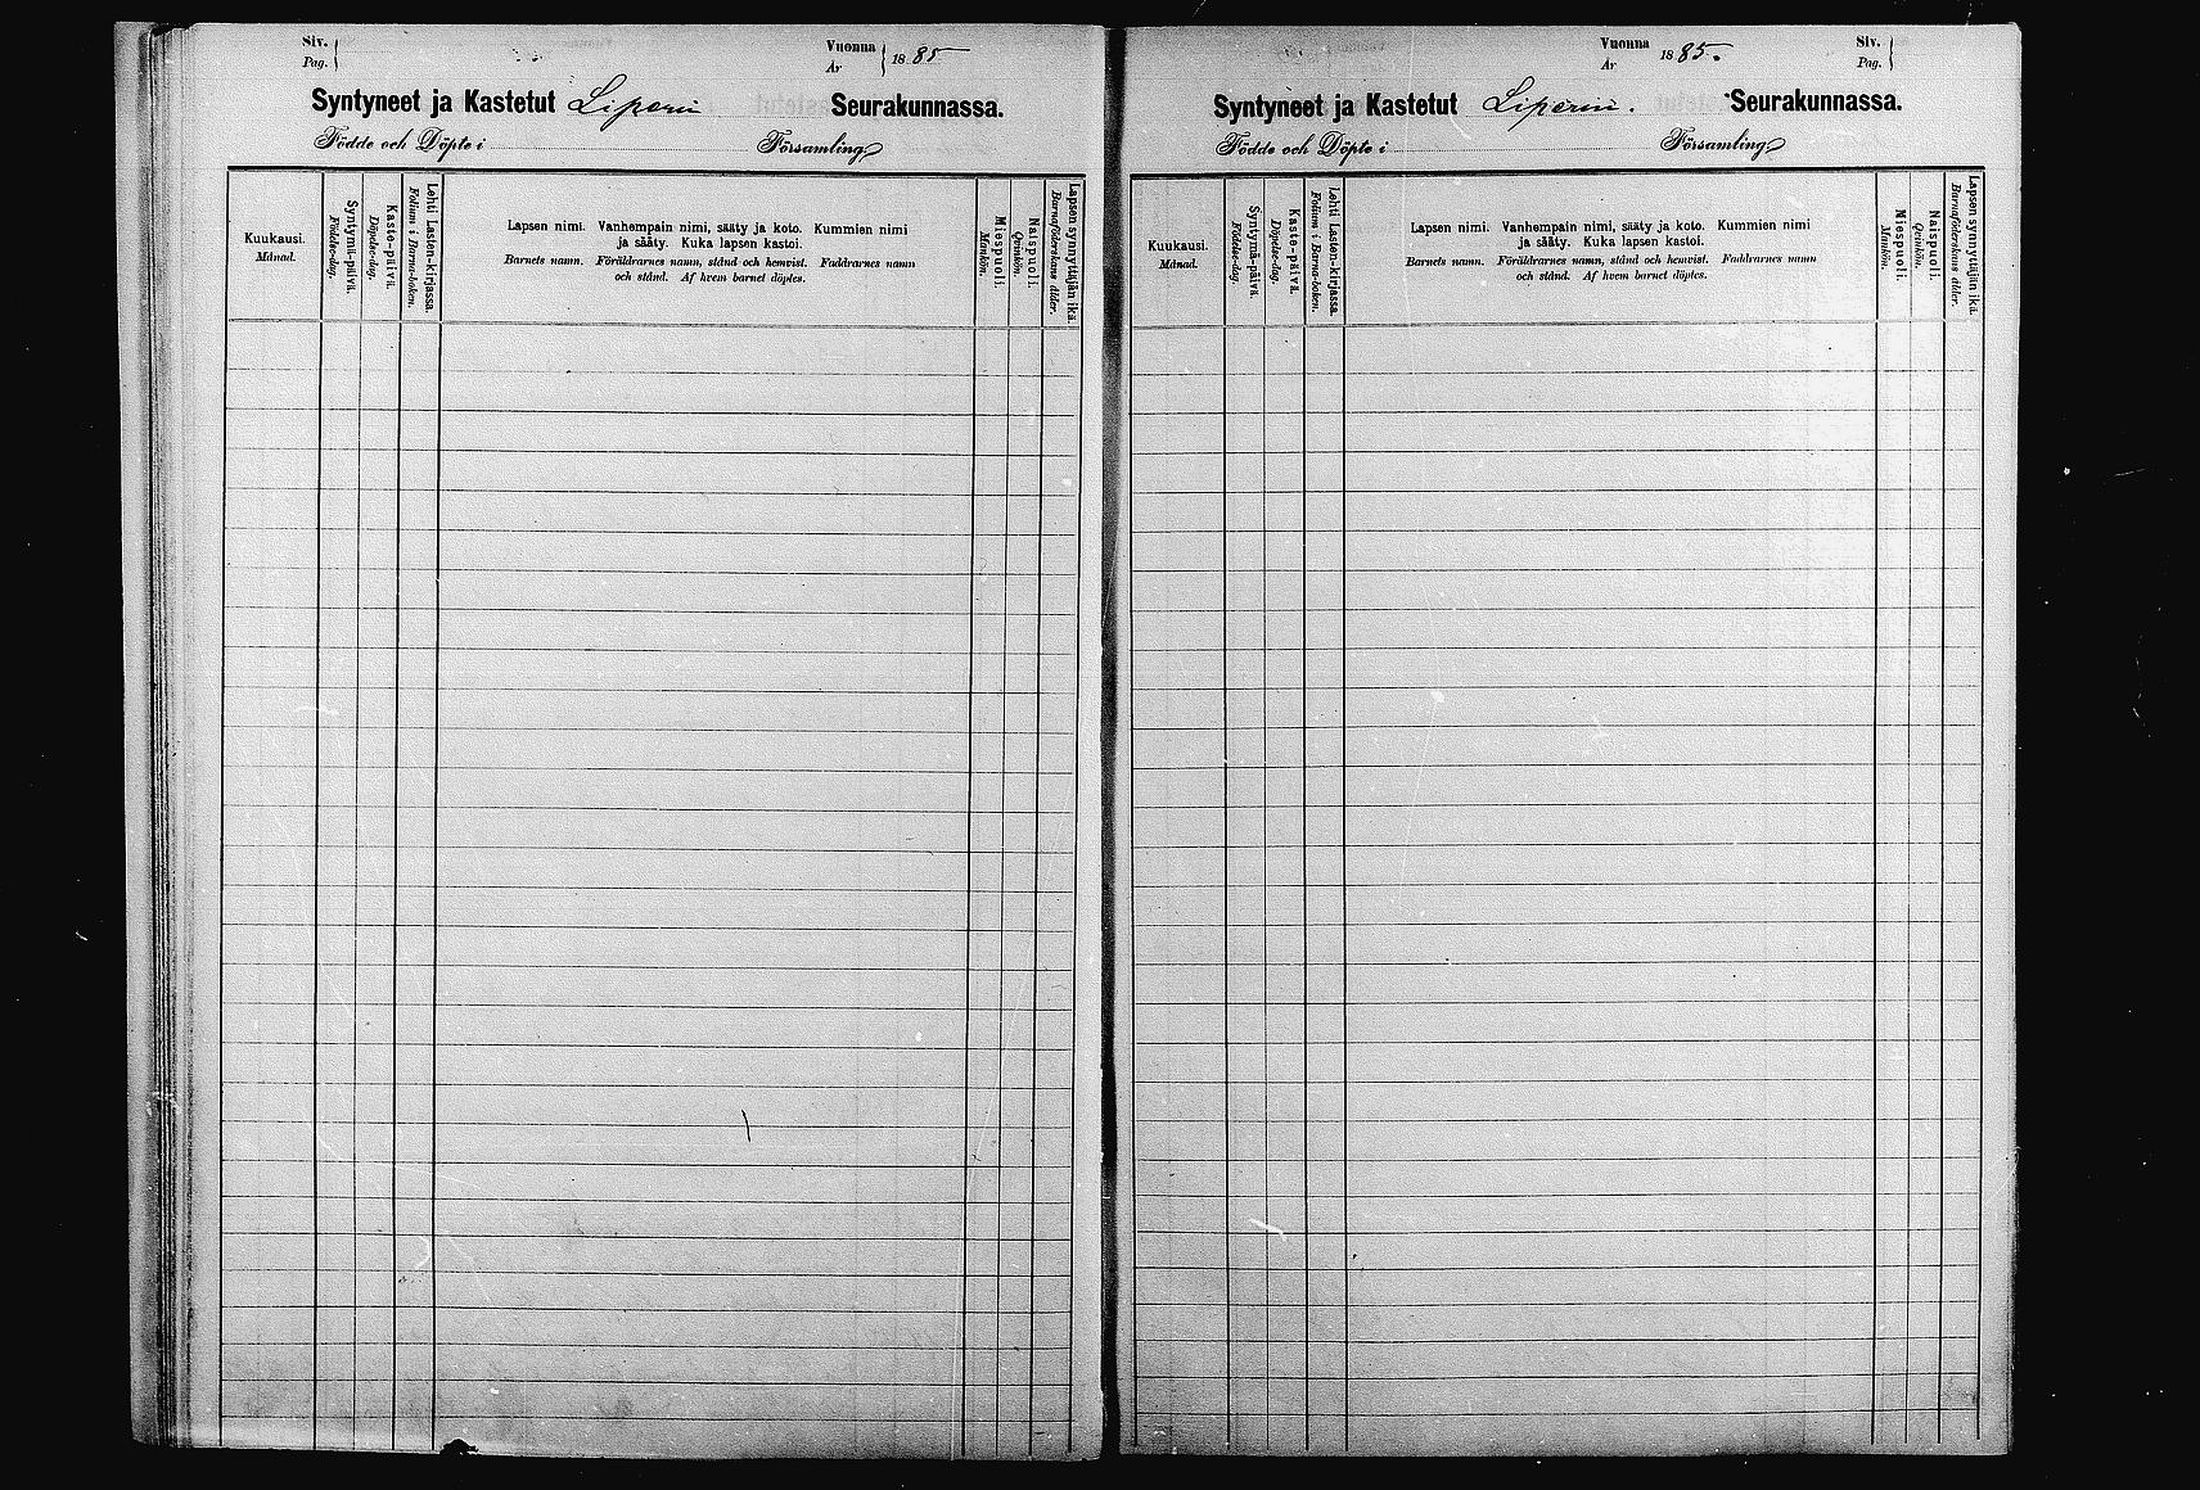 Siv.
Pag.
Vuonna
År
1885
Syntyneet ja Kastetut Liperin Seurakunnassa.
Födde och Döpte i Församling
Kuukausi.
Månad.
Syntymä-päivä.
Födelse-dag.
Kaste-päivä.
Döpelse-dag.
Lehti Lasten-kirjassa.
Folium i Barna-boken.
Lapsen nimi. Vanhempain nimi, sääty ja koto. Kummien nimi
ja sääty. Kuka lapsen kastoi.
Barnets namn. Föräldrarnes namn, stånd och hemvist. Faddrarnes namn
och stånd. Af hvem barnet döptes.
Miespuoli.
Mankön.
Naispuoli.
Qvinkön.
Lapsen synnyttäjän ikä.
Barnaföderskans ålder.
Vuonna
År
1885.
Siv.
Pag.
Syntyneet ja Kastetut Liperin. Seurakunnassa.
Födde och Döpte i Församling
Kuukausi.
Månad.
Syntymä-päivä.
Födelse-dag.
Kaste-päivä.
Döpelse-dag.
Lehti Lasten-kirjassa.
Folium i Barna-boken.
Lapsen nimi. Vanhempain nimi, sääty ja koto. Kummien nimi
ja sääty. Kuka lapsen kastoi.
Barnets namn. Föräldrarnes namn, stånd och hemvist. Faddrarnes namn
och stånd. Af hvem barnet döptes.
Miespuoli.
Mankön.
Naispuoli.
Qvinkön.
Lapsen synnyttäjän ikä.
Barnaföderskans ålder.